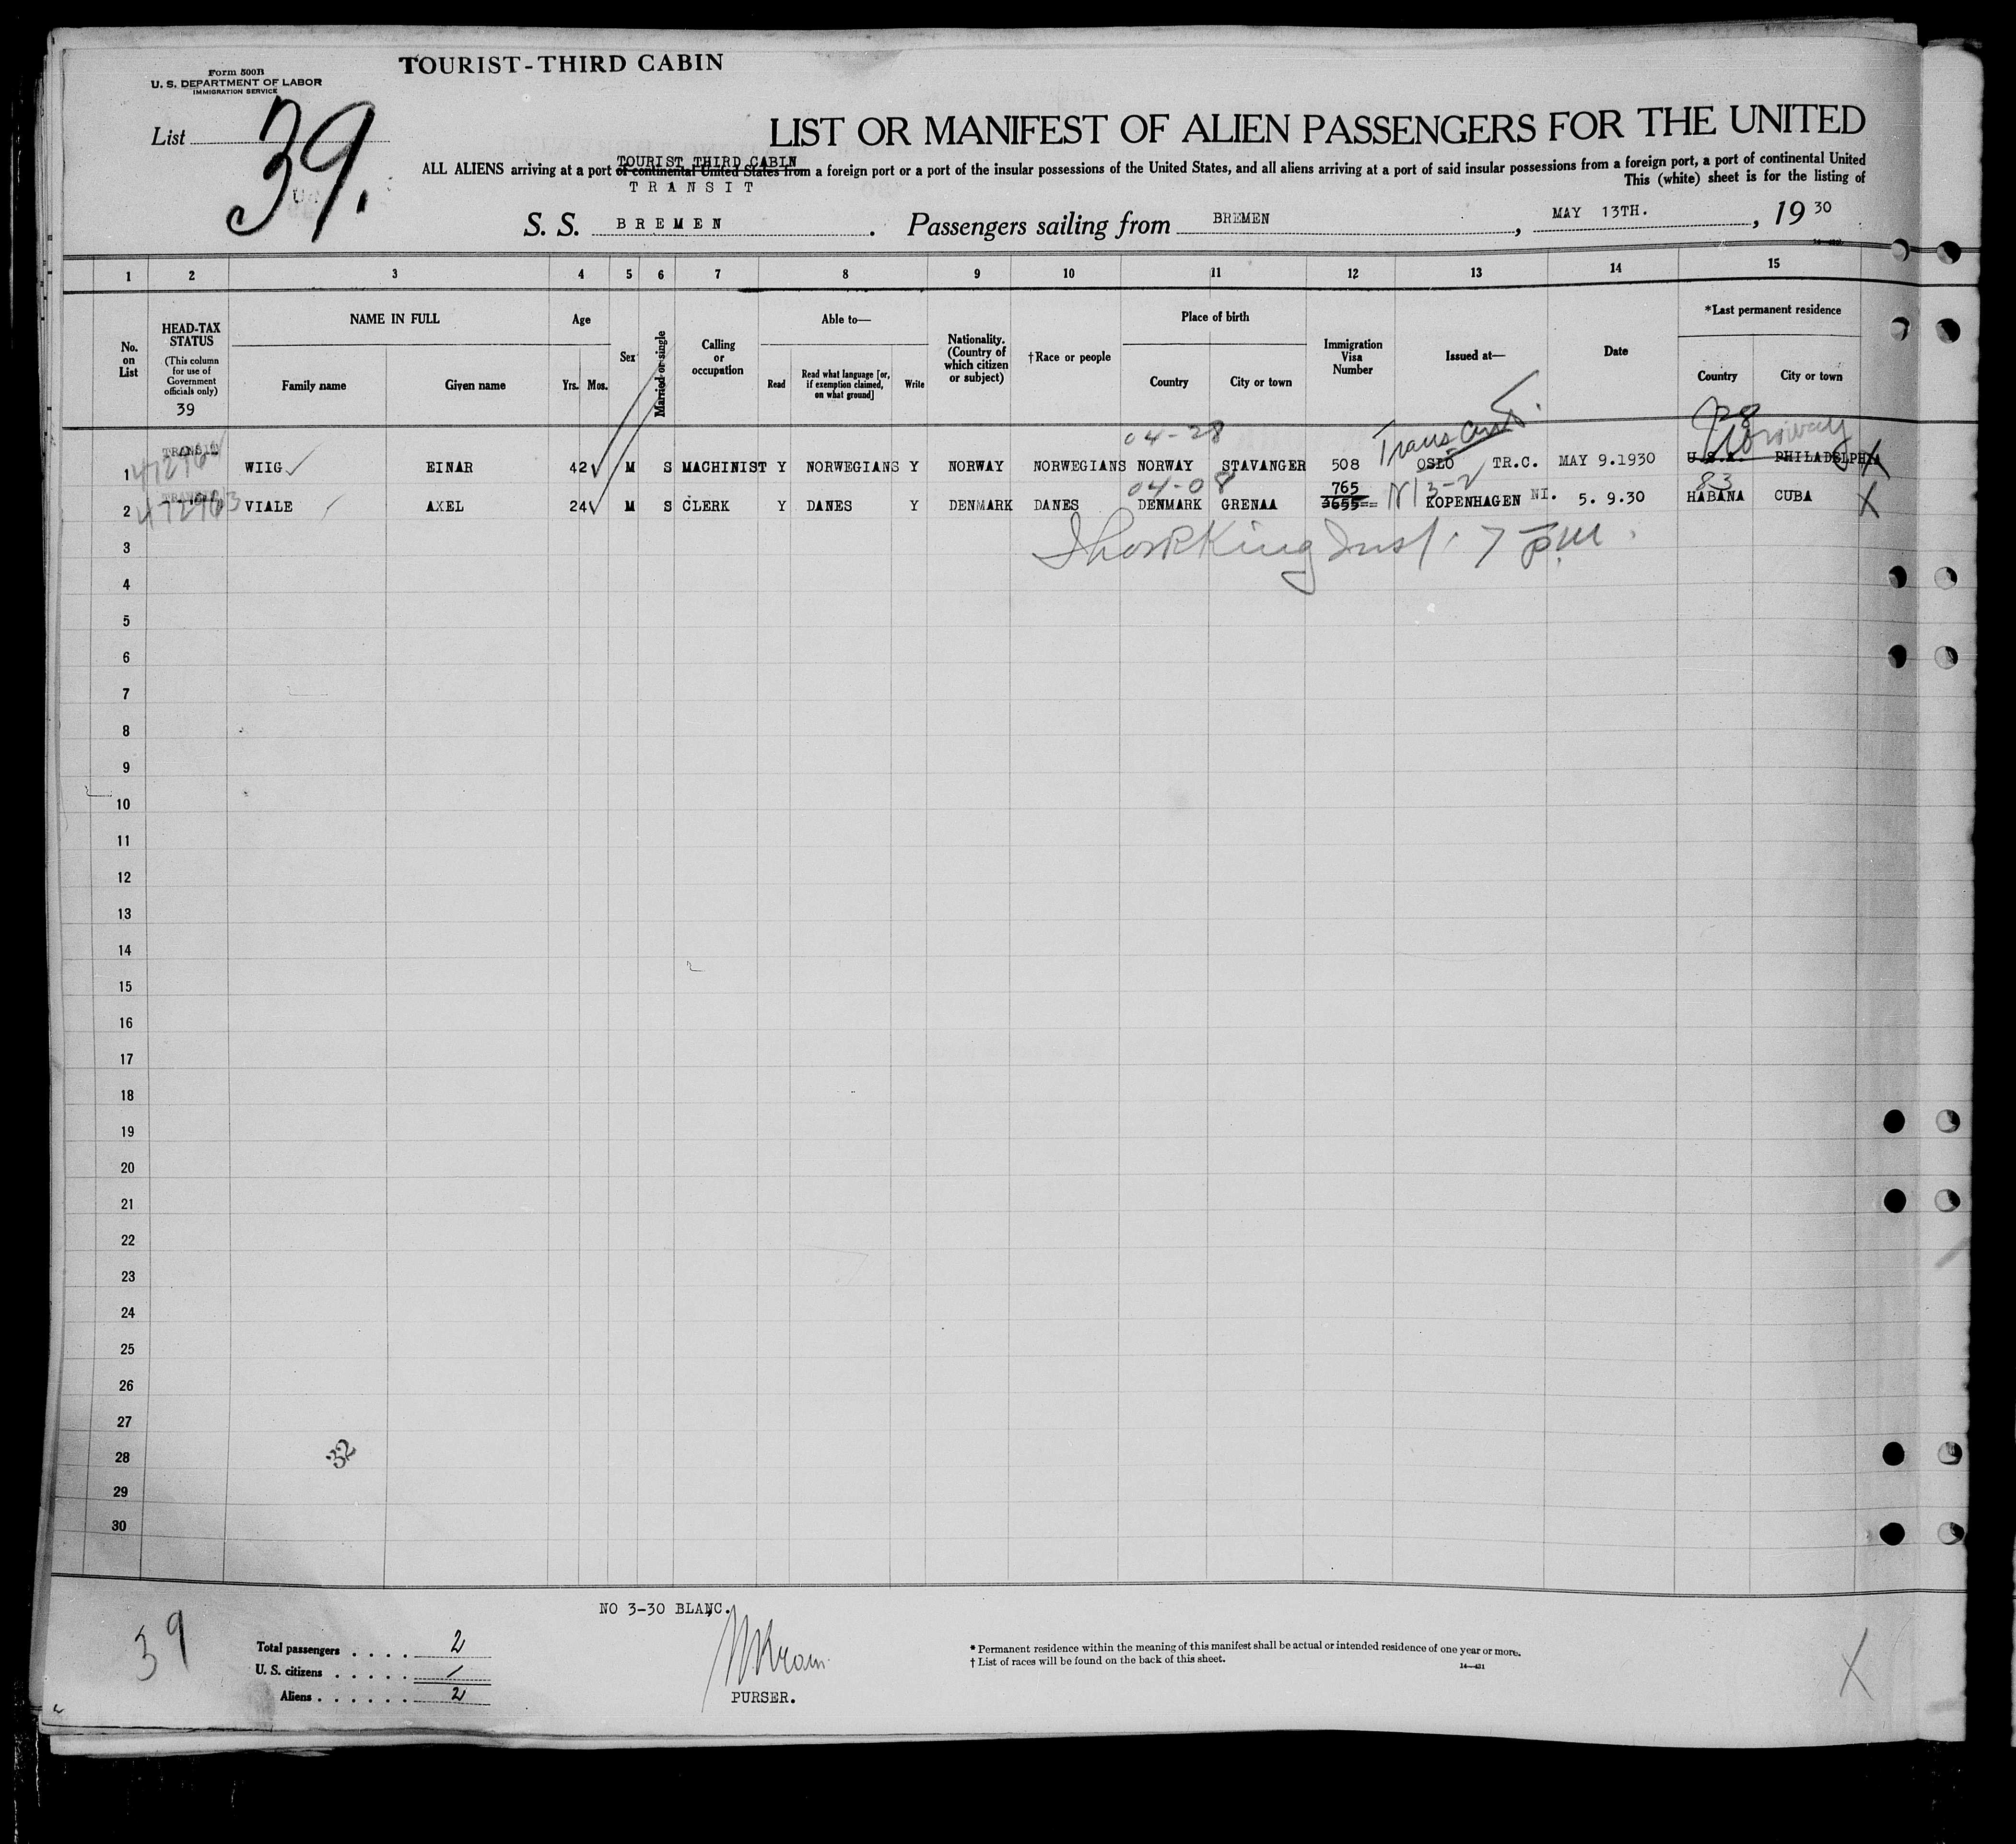 TOURIST-THIRD CABIN
Form 500B
U. S. DEPARTMENT OF LABOR
IMMIGRATION SERVICE
List 39.
LIST OR MANIFEST OF ALIEN PASSENGERS FOR THE UNITED
TOURIST THIRD CABIN
ALL ALIENS arriving at a port of continental United States from a foreign port or a port of the insular possessions of the United States, and all aliens arriving at a port of said insular possessions from a foreign port, a port of continental United
TRANSIT
This (white) sheet is for the listing of
S. S. BREMEN. Passengers sailing from BREMEN, MAY 13TH., 1930
1 2 3 4 5 6 7 8 9 10 11 12 13 14 15
No. on List
HEAD-TAX STATUS
(This column for use of Government officials only)
39
NAME IN FULL
Family name
Given name
Age
Yrs. Mos.
Sex
Married or single
Calling or occupation
Able to—
Read
Read what language [or, if exemption claimed, on what ground]
Write
Nationality. (Country of which citizen or subject)
†Race or people
Place of birth
Country
City or town
Immigration Visa Number
Issued at—
Date
*Last permanent residence
Country
City or town
04-28
Norway
1 TRANSIT WIIG EINAR 42 M S MACHINIST Y NORWEGIANS Y NORWAY NORWEGIANS NORWAY STAVANGER 508 OSLO TR.C. MAY 9.1930 U.S.A. PHILADELPHIA X
04-08
765
83
2 VIALE AXEL 24 M S CLERK Y DANES Y DENMARK DANES DENMARK GRENAA 3655 KOPENHAGEN NI. 5. 9.30 HABANA CUBA X
3
7 pm.
4
5
6
7
8
9
10
11
12
13
14
15
16
17
18
19
20
21
22
23
24
25
26
27
28
32
29
30
NO 3-30 BLANC.
39
Total passengers . . . . 2
U. S. citizens . . . . . /
Aliens . . . . . . 2
PURSER.
* Permanent residence within the meaning of this manifest shall be actual or intended residence of one year or more.
† List of races will be found on the back of this sheet.
14—421
X